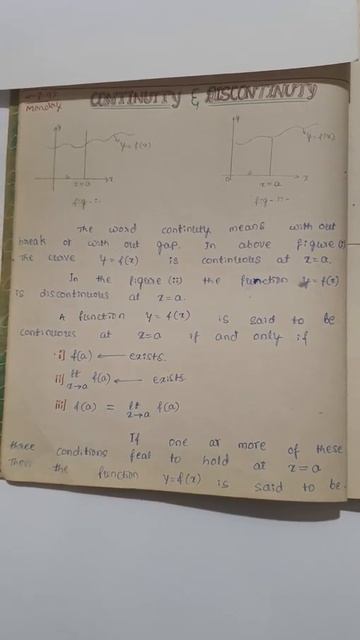 Monday
CONTINUITY & DISCONTINUTY
y
y=f(x)
x=a
x
fig-i-
y
y=f(x)
x=a
x
fig-ii-
The word continuty means with out
break of with out gap. In above figure(i)
The curve y=f(x) is continuous at x=a.
In the figure (ii) the function y=f(x)
is discontinuous at x=a.
A function y=f(x) is said to be
continuous at x=a if and only if
i] f(a) ← exists.
ii] lt x→a f(a) ← exists.
iii] f(a) = lt x→a f(a)
If one or more of these
three conditions feal to hold at x=a
Then the function y=f(x) is said to be.